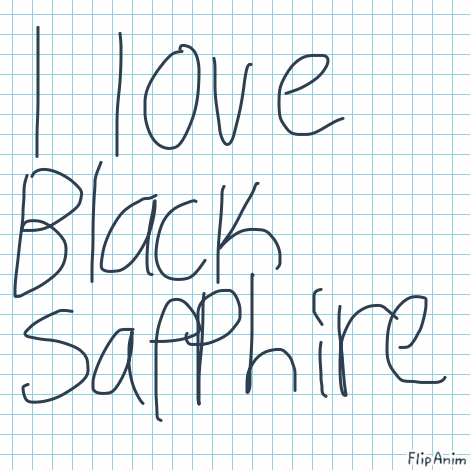 I love
Black
Sapphire
FlipAnim